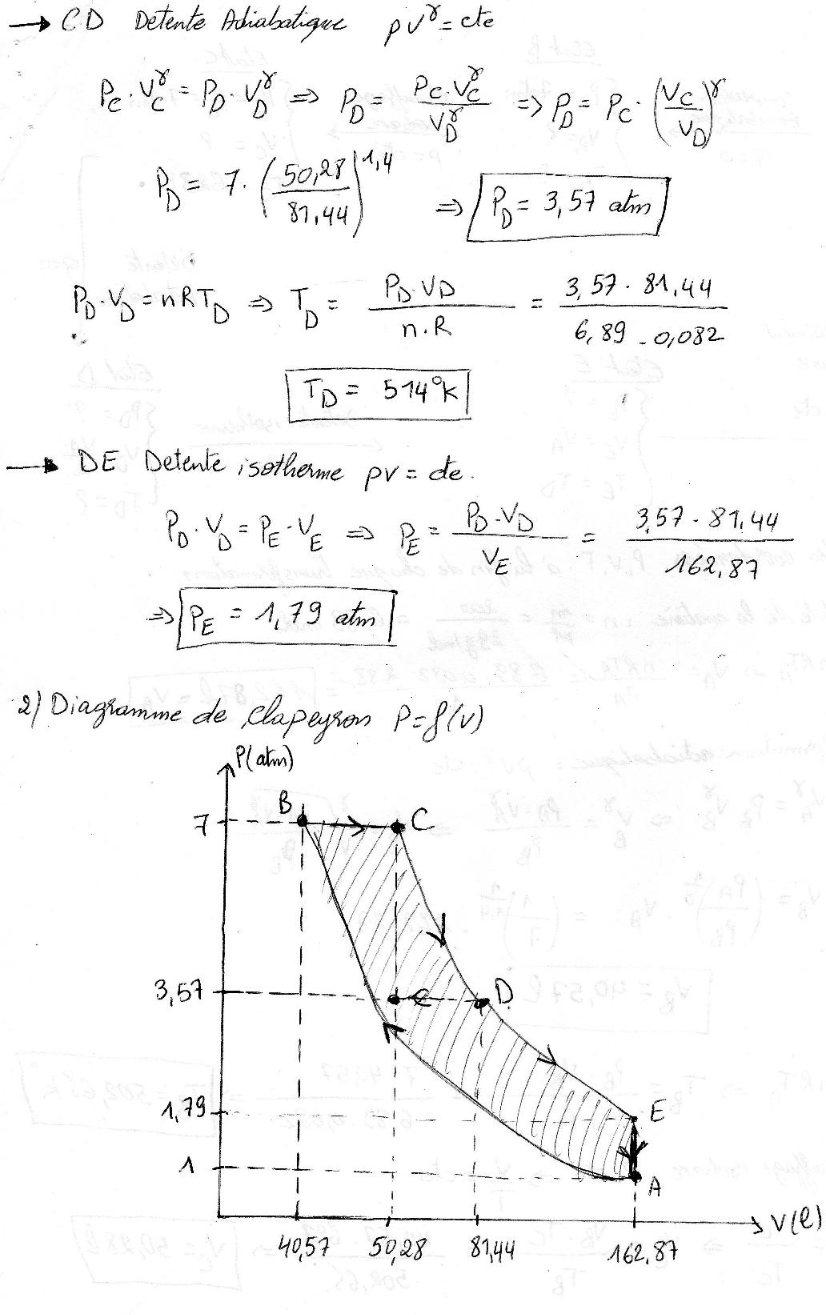 → CD Detente Adiabatique pV^γ = cte
P_C · V_C^γ = P_D · V_D^γ ⇒ P_D = P_C · V_C^γ / V_D^γ ⇒ P_D = P_C · (V_C / V_D)^γ
P_D = 7 · (50,28 / 81,44)^1,4 ⇒ P_D = 3,57 atm
P_D · V_D = nRT_D ⇒ T_D = P_D · V_D / n.R = 3,57 · 81,44 / 6,89 · 0,082
T_D = 514°K
→ DE Detente isotherme pV = cte.
P_D · V_D = P_E · V_E ⇒ P_E = P_D · V_D / V_E = 3,57 · 81,44 / 162,87
⇒ P_E = 1,79 atm
2) Diagramme de Clapeyron P = f(v)
P(atm)
B C
7
3,57 D
1,79 E
1
A
V(l)
40,57 50,28 81,44 162,87